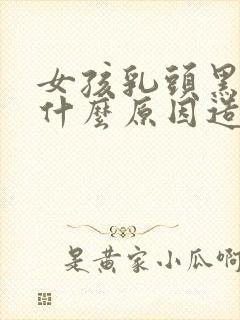 女孩乳頭黑
什麼原因造
是黃家小瓜啊